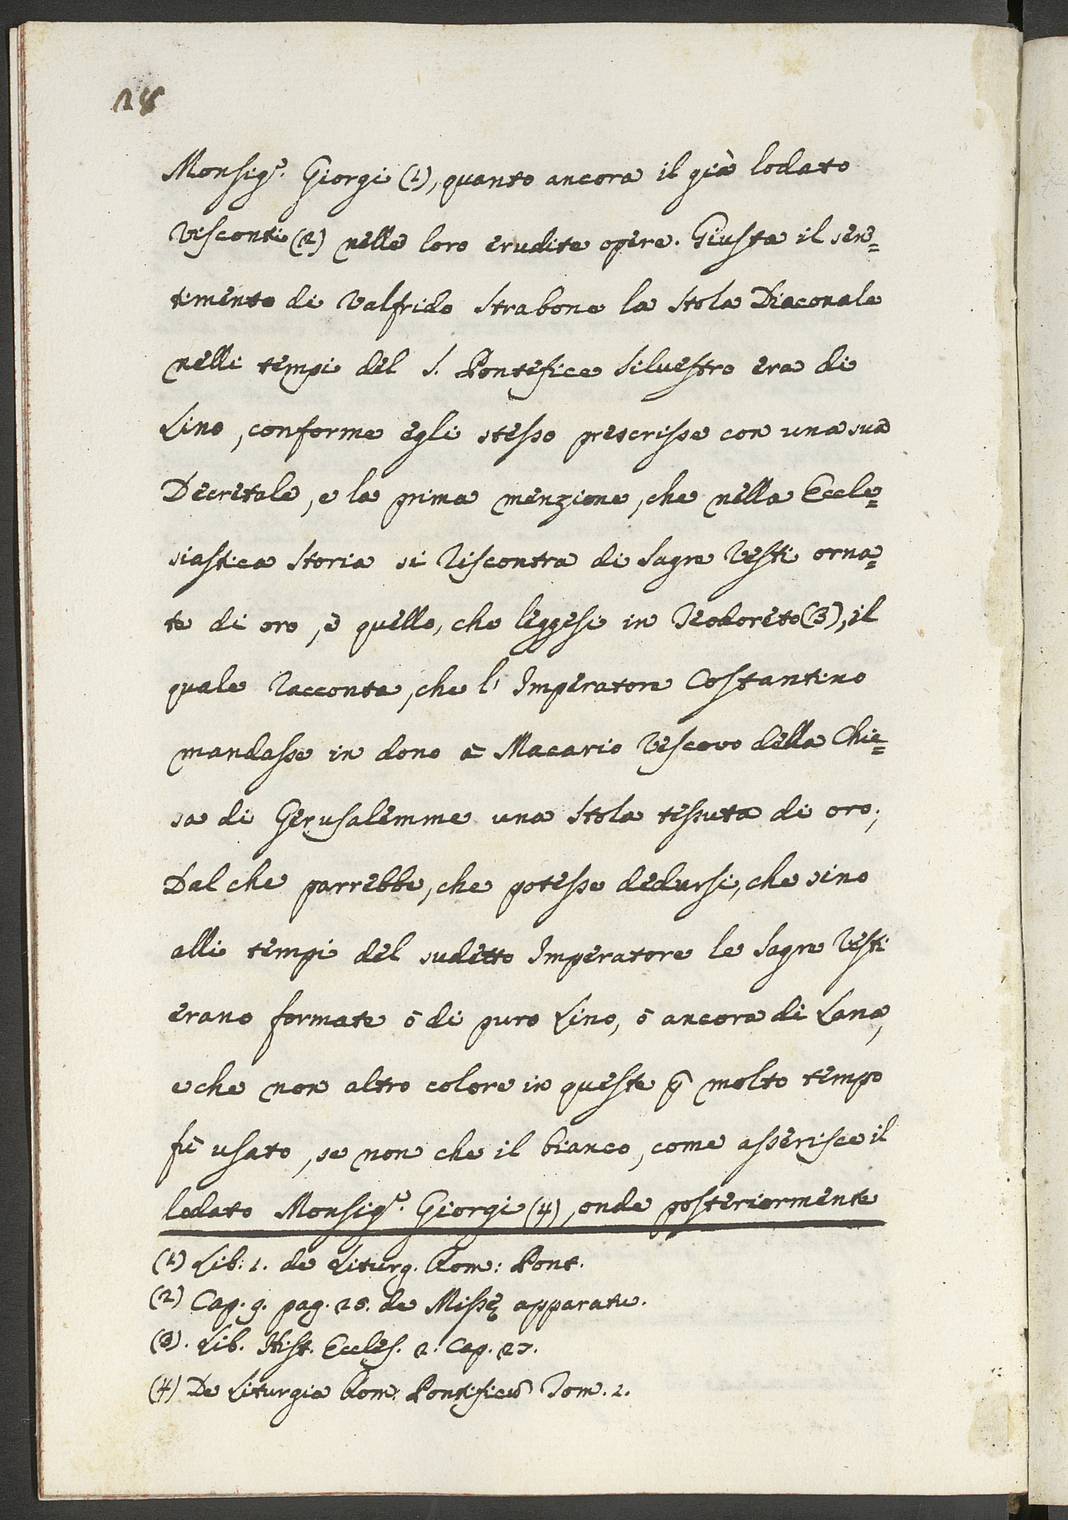 28
Monsig.r Giorgi (1), quanto ancora il già lodato
Visconti (2) nelle loro erudite opere. Giusta il sen=
timento di Valfrido Strabone la Stola Diaconale
nelli tempi del S. Pontefice Silvestro era di
Lino, conforme egli stesso prescrisse con una sua
Decretale, e la prima menzione, che nella Eccle=
siastica Storia si riscontra di Sagre Vesti orna=
te di oro, è quello, che leggesi in Teodoreto (3), il
quale racconta, che l' Imperatore Costantino
mandasse in dono à Macario Vescovo della Chie=
sa di Gerusalemme una Stola tessuta di oro;
Dal che parrebbe, che potesse dedursi, che sino
alli tempi del sudetto Imperatore le Sagre Vesti
erano formate ò di puro Lino, ò ancora di Lana,
e che non altro colore in queste p̄ molto tempo
fù usato, se non che il bianco, come asserisce il
lodato Monsig.r Giorgi (4), onde posteriormente
(1) Lib: 1. de Liturg. Rom: Pont.
(2) Cap. 9. pag. 28. de Missę apparatu.
(3). Lib. Hist. Eccles. 2. Cap. 27.
(4) De Liturgia Rom: Pontificū Tom. 1.